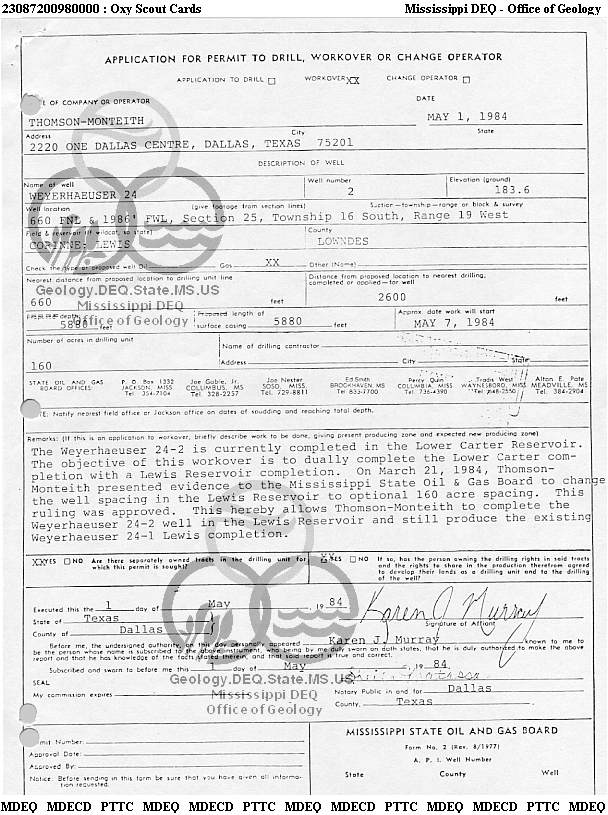 23087200980000 : Oxy Scout Cards Mississippi DEQ - Office of Geology
APPLICATION FOR PERMIT TO DRILL, WORKOVER OR CHANGE OPERATOR
APPLICATION TO DRILL WORKOVER XX CHANGE OPERATOR
E OF COMPANY OR OPERATOR DATE
THOMSON-MONTEITH MAY 1, 1984
Address City State
2220 ONE DALLAS CENTRE, DALLAS, TEXAS 75201
DESCRIPTION OF WELL
Name of well Well number Elevation (ground)
WEYERHAEUSER 24 2 183.6
Well location (give footage from section lines) Suction—township—range or block & survey
660 FNL & 1986' FWL, Section 25, Township 16 South, Range 19 West
Field & reservoir (If wildcat, so state) County
CORINNE: LEWIS LOWNDES
Check the type of proposed well Oil Gas XX Other (Name)
Nearest distance from proposed location to drilling unit line Distance from proposed location to nearest drilling, completed or applied—for well
Geology.DEQ.State.MS.US
Mississippi DEQ
Office of Geology
660 feet 2600 feet
depth Proposed length of surface casing Approx. date work will start
5880 feet 5880 feet MAY 7, 1984
Number of acres in drilling unit Name of drilling contractor
160 Address City State
STATE OIL AND GAS BOARD OFFICES P. O. Box 1332 JACKSON, MISS. Tel. 354-7104 Joe Gable, Jr. COLUMBUS, MS Tel. 328-2257 Joe Nester SOSO, MISS. Tel. 729-8811 Ed Smith BROOKHAVEN, MS Tel 833-7700 Percy Quin COLUMBIA, MISS Tel. 736-4390 Tradis West WAYNESBORO, MISS. Tel 848-2550 Alton E. Pate MEADVILLE, MS Tel. 384-2904
TE: Notify nearest field office or Jackson office on dates of spudding and reaching total depth.
Remarks: (If this is an application to workover, briefly describe work to be done, giving present producing zone and expected new producing zone)
The Weyerhaeuser 24-2 is currently completed in the Lower Carter Reservoir.
The objective of this workover is to dually complete the Lower Carter com-
pletion with a Lewis Reservoir completion. On March 21, 1984, Thomson-
Monteith presented evidence to the Mississippi State Oil & Gas Board to change
the well spacing in the Lewis Reservoir to optional 160 acre spacing. This
ruling was approved. This hereby allows Thomson-Monteith to complete the
Weyerhaeuser 24-2 well in the Lewis Reservoir and still produce the existing
Weyerhaeuser 24-1 Lewis completion.
XX YES NO Are there separately owned tracts in the drilling unit for which this permit is sought?
XX YES NO If so, has the person owning the drilling rights in said tracts and the rights to share in the production therefrom agreed to develop their lands as a drilling unit and to the drilling of the well?
Executed this the 1 day of May , 19 84 Karen J. Murray
State of Texas Signature of Affiant
County of Dallas
Before me, the undersigned authority, on this day personally appeared Karen J. Murray known to me to
be the person whose name is subscribed to the above instrument, who being by me duly sworn on oath states, that he is duly authorized to make the above
report and that he has knowledge of the facts stated therein, and that said report is true and correct.
Subscribed and sworn to before me this 1 day of May , 19 84
SEAL
Geology.DEQ.State.MS.US
Mississippi DEQ
Office of Geology
My commission expires Notary Public in and for Dallas
County, Texas
mit Number:
Approval Date:
Approved By:
Notice: Before sending in this form be sure that you have given all information requested.
MISSISSIPPI STATE OIL AND GAS BOARD
Form No. 2 (Rev. 8/1977)
A. P. I. Well Number
State County Well
MDEQ MDECD PTTC MDEQ MDECD PTTC MDEQ MDECD PTTC MDEQ MDECD PTTC MDEQ